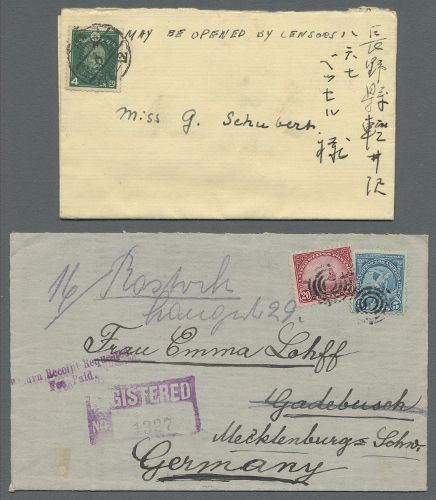 MAY BE OPENED BY CENSORS
長野縣軽井沢
八六七
ベッセル様
4
Miss G. Schubert
20
16/ Rostock
Langestr 29.
Frau Emma Lohff
Return Receipt Requested
Fee Paid.
REGISTERED
No 1327
Gadebusch
Mecklenburg=Schw.
Germany